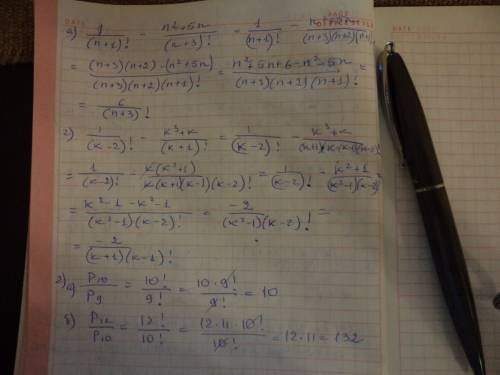 DATE PAGE DATE
а) 1/(n+1)! - (n²+5n)/(n+3)! = 1/(n+1)! - (n²+5n)/((n+3)(n+2)(n+1)!)
= ((n+3)(n+2) - (n²+5n))/((n+3)(n+2)(n+1)!) = (n²+5n+6-n²-5n)/((n+3)(n+2)(n+1)!) =
= 6/(n+3)!
г) 1/(k-2)! - (k³+k)/(k+1)! = 1/(k-2)! - (k³+k)/((k+1)k(k-1)(k-2)!)
= 1/(k-2)! - k(k²+1)/(k(k+1)(k-1)(k-2)!) = 1/(k-2)! - (k²+1)/((k²-1)(k-2)!)
= (k²-1-k²-1)/((k²-1)(k-2)!) = -2/((k²-1)(k-2)!) =
= -2/((k+1)(k-1)!)
2) а) P₁₀/P₉ = 10!/9! = 10·9!/9! = 10
б) P₁₂/P₁₀ = 12!/10! = 12·11·10!/10! = 12·11 = 132